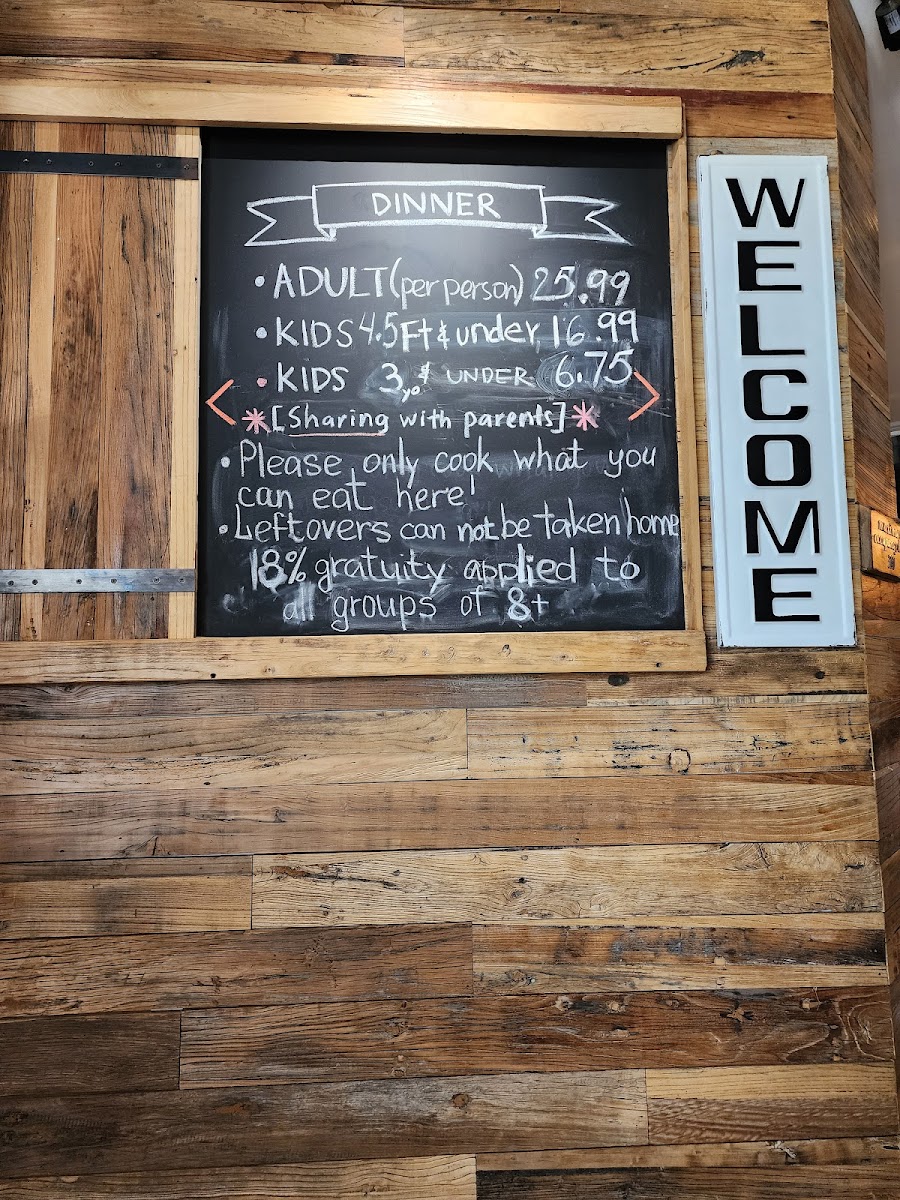 DINNER
• ADULT (per person) 25.99
• KIDS 4.5Ft & under, 16.99
• KIDS 3yo & UNDER 6.75
*[Sharing with parents]*
• Please only cook what you
can eat here!
• Leftovers can not be taken home
18% gratuity applied to
all groups of 8+
WELCOME